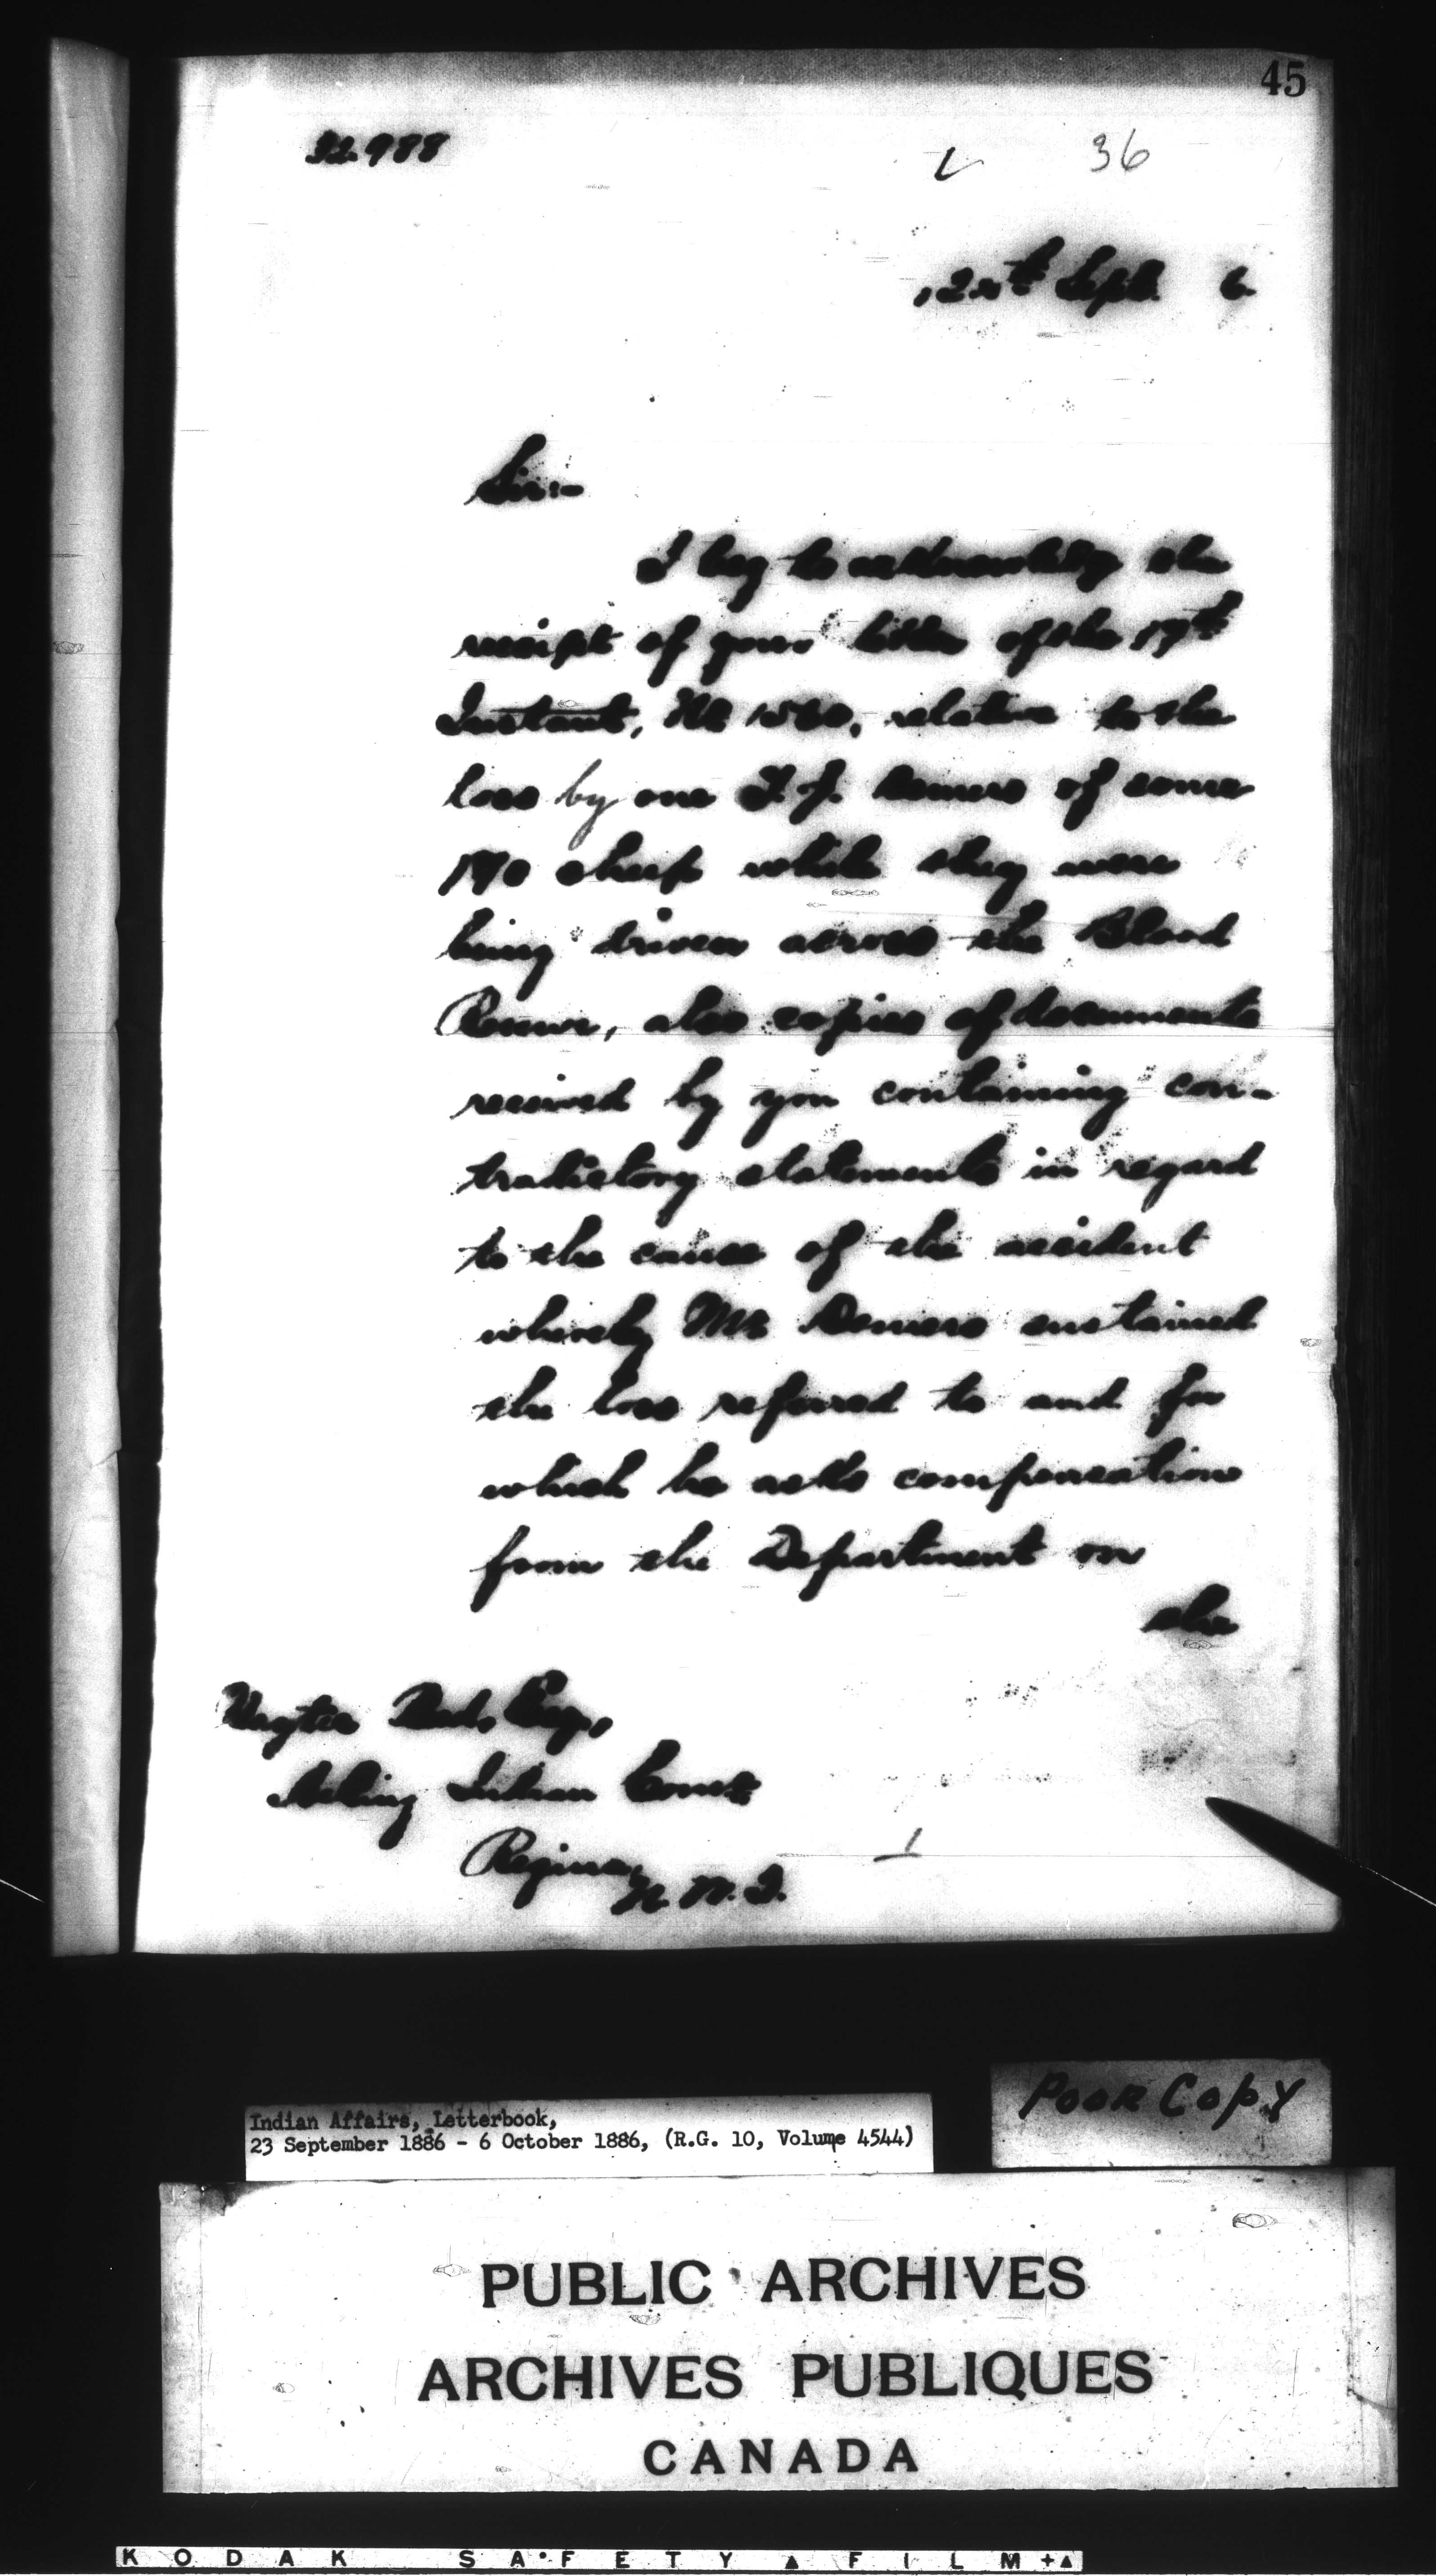 45
32.988
36
Sept. 6
Sir:-
I beg to acknowledge the
receipt of your letter of the 17th
Instant, No 1560, relative to the
loss by one T. J. Demers of some
190 sheep while they were
being driven across the Blood
Reserve, also copies of documents
received by you containing con-
tradictory statements in regard
to the cause of the accident
whereby Mr Demers sustained
the loss referred to and for
which he asks compensation
from the Department on
the
Hayter Reed, Esq.,
Acting Indian Commr
Regina,
N. W. T.
Poor Copy
Indian Affairs, Letterbook,
23 September 1886 - 6 October 1886, (R.G. 10, Volume 4544)
PUBLIC ARCHIVES
ARCHIVES PUBLIQUES
CANADA
KODAK SAFETY FILM